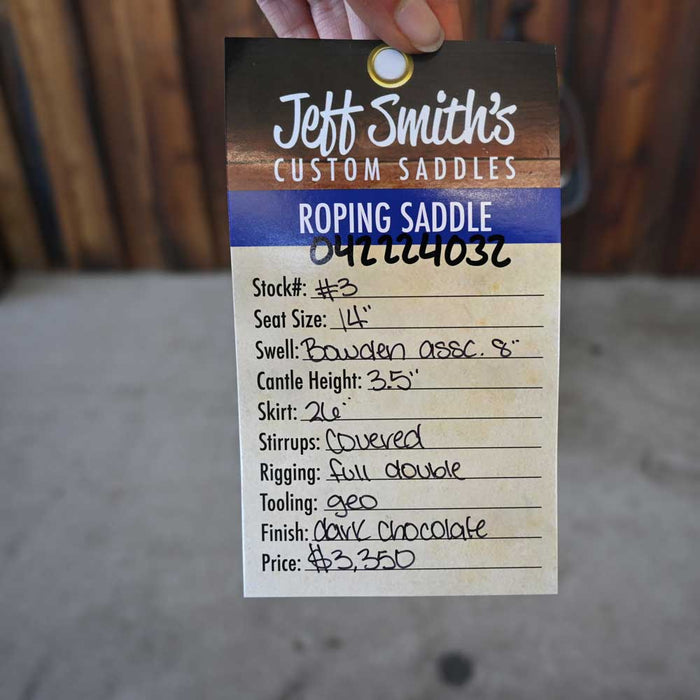 Jeff Smith's
CUSTOM SADDLES
ROPING SADDLE
042224032
Stock#: #3
Seat Size: 14"
Swell: Bowden assc. 8"
Cantle Height: 3.5"
Skirt: 26"
Stirrups: Covered
Rigging: full double
Tooling: geo
Finish: dark chocolate
Price: $3,350